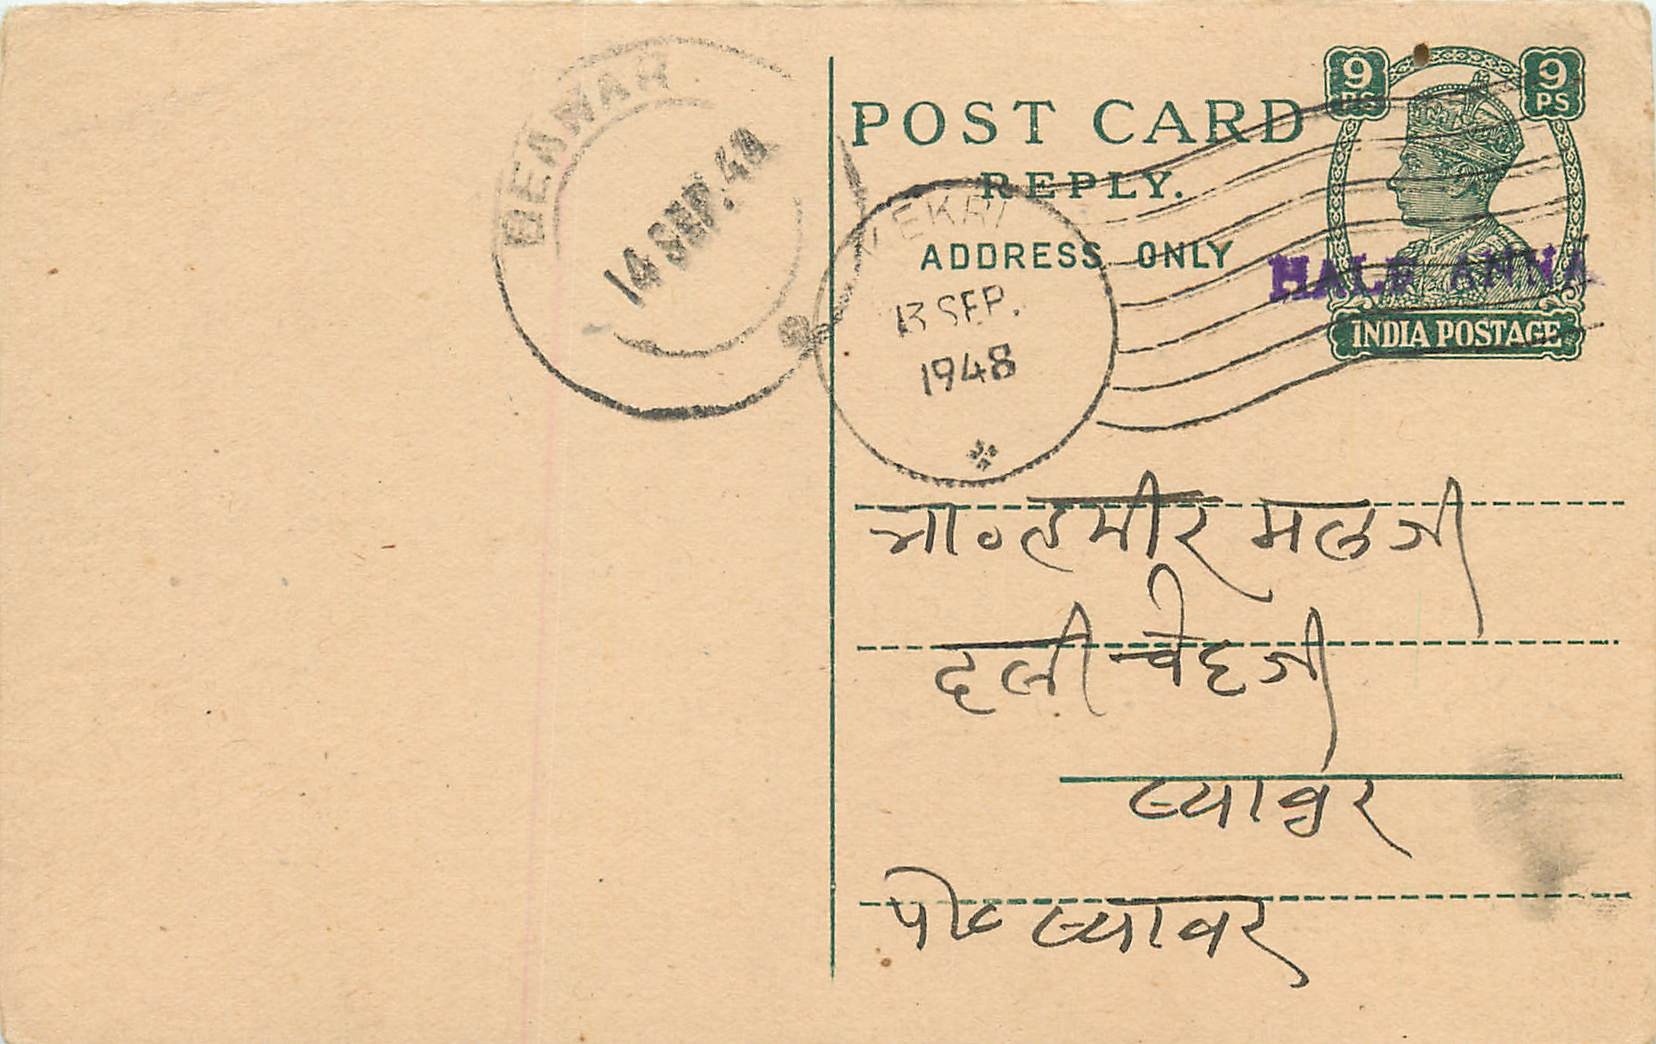 9 PS
9 PS
POST CARD
REPLY.
ADDRESS ONLY
HALF ANNA
INDIA POSTAGE
BEAWAR
14 SEP. 48
KEKRI
13 SEP.
1948
हमीर मलजी
ब्यावर
पो० ब्यावर